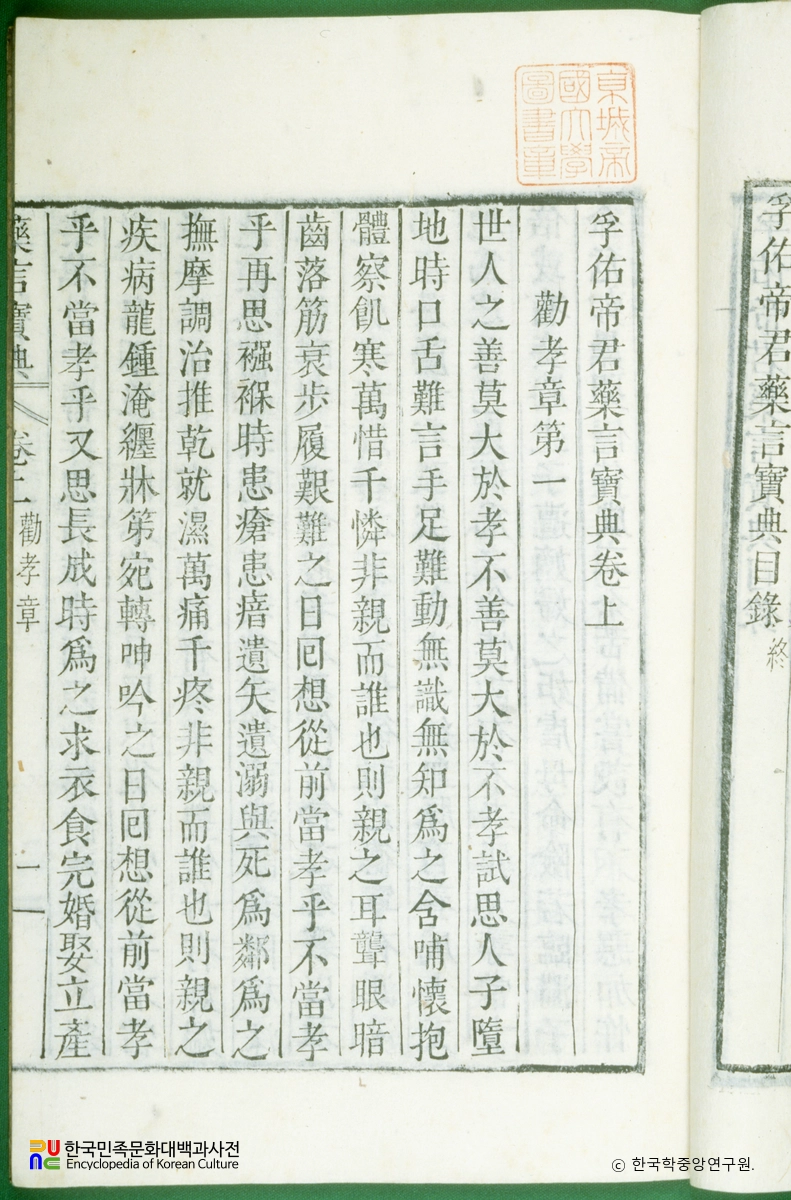 孚佑帝君藥言寶典目錄終
京城帝
國大學
圖書章
孚佑帝君藥言寶典卷上
勸孝章第一
世人之善莫大於孝不善莫大於不孝試思人子墮
地時口舌難言手足難動無識無知爲之含哺懷抱
體察飢寒萬惜千憐非親而誰也則親之耳聾眼暗
齒落筋衰步履艱難之日回想從前當孝乎不當孝
乎再思襁褓時患瘡患瘖遺矢遺溺與死爲鄰爲之
撫摩調治推乾就濕萬痛千疼非親而誰也則親之
疾病龍鍾淹纏牀笫宛轉呻吟之日回想從前當孝
乎不當孝乎又思長成時爲之求衣食完婚娶立產
藥言寶典 卷上 勸孝章 一
한국민족문화대백과사전
Encyclopedia of Korean Culture
ⓒ 한국학중앙연구원.